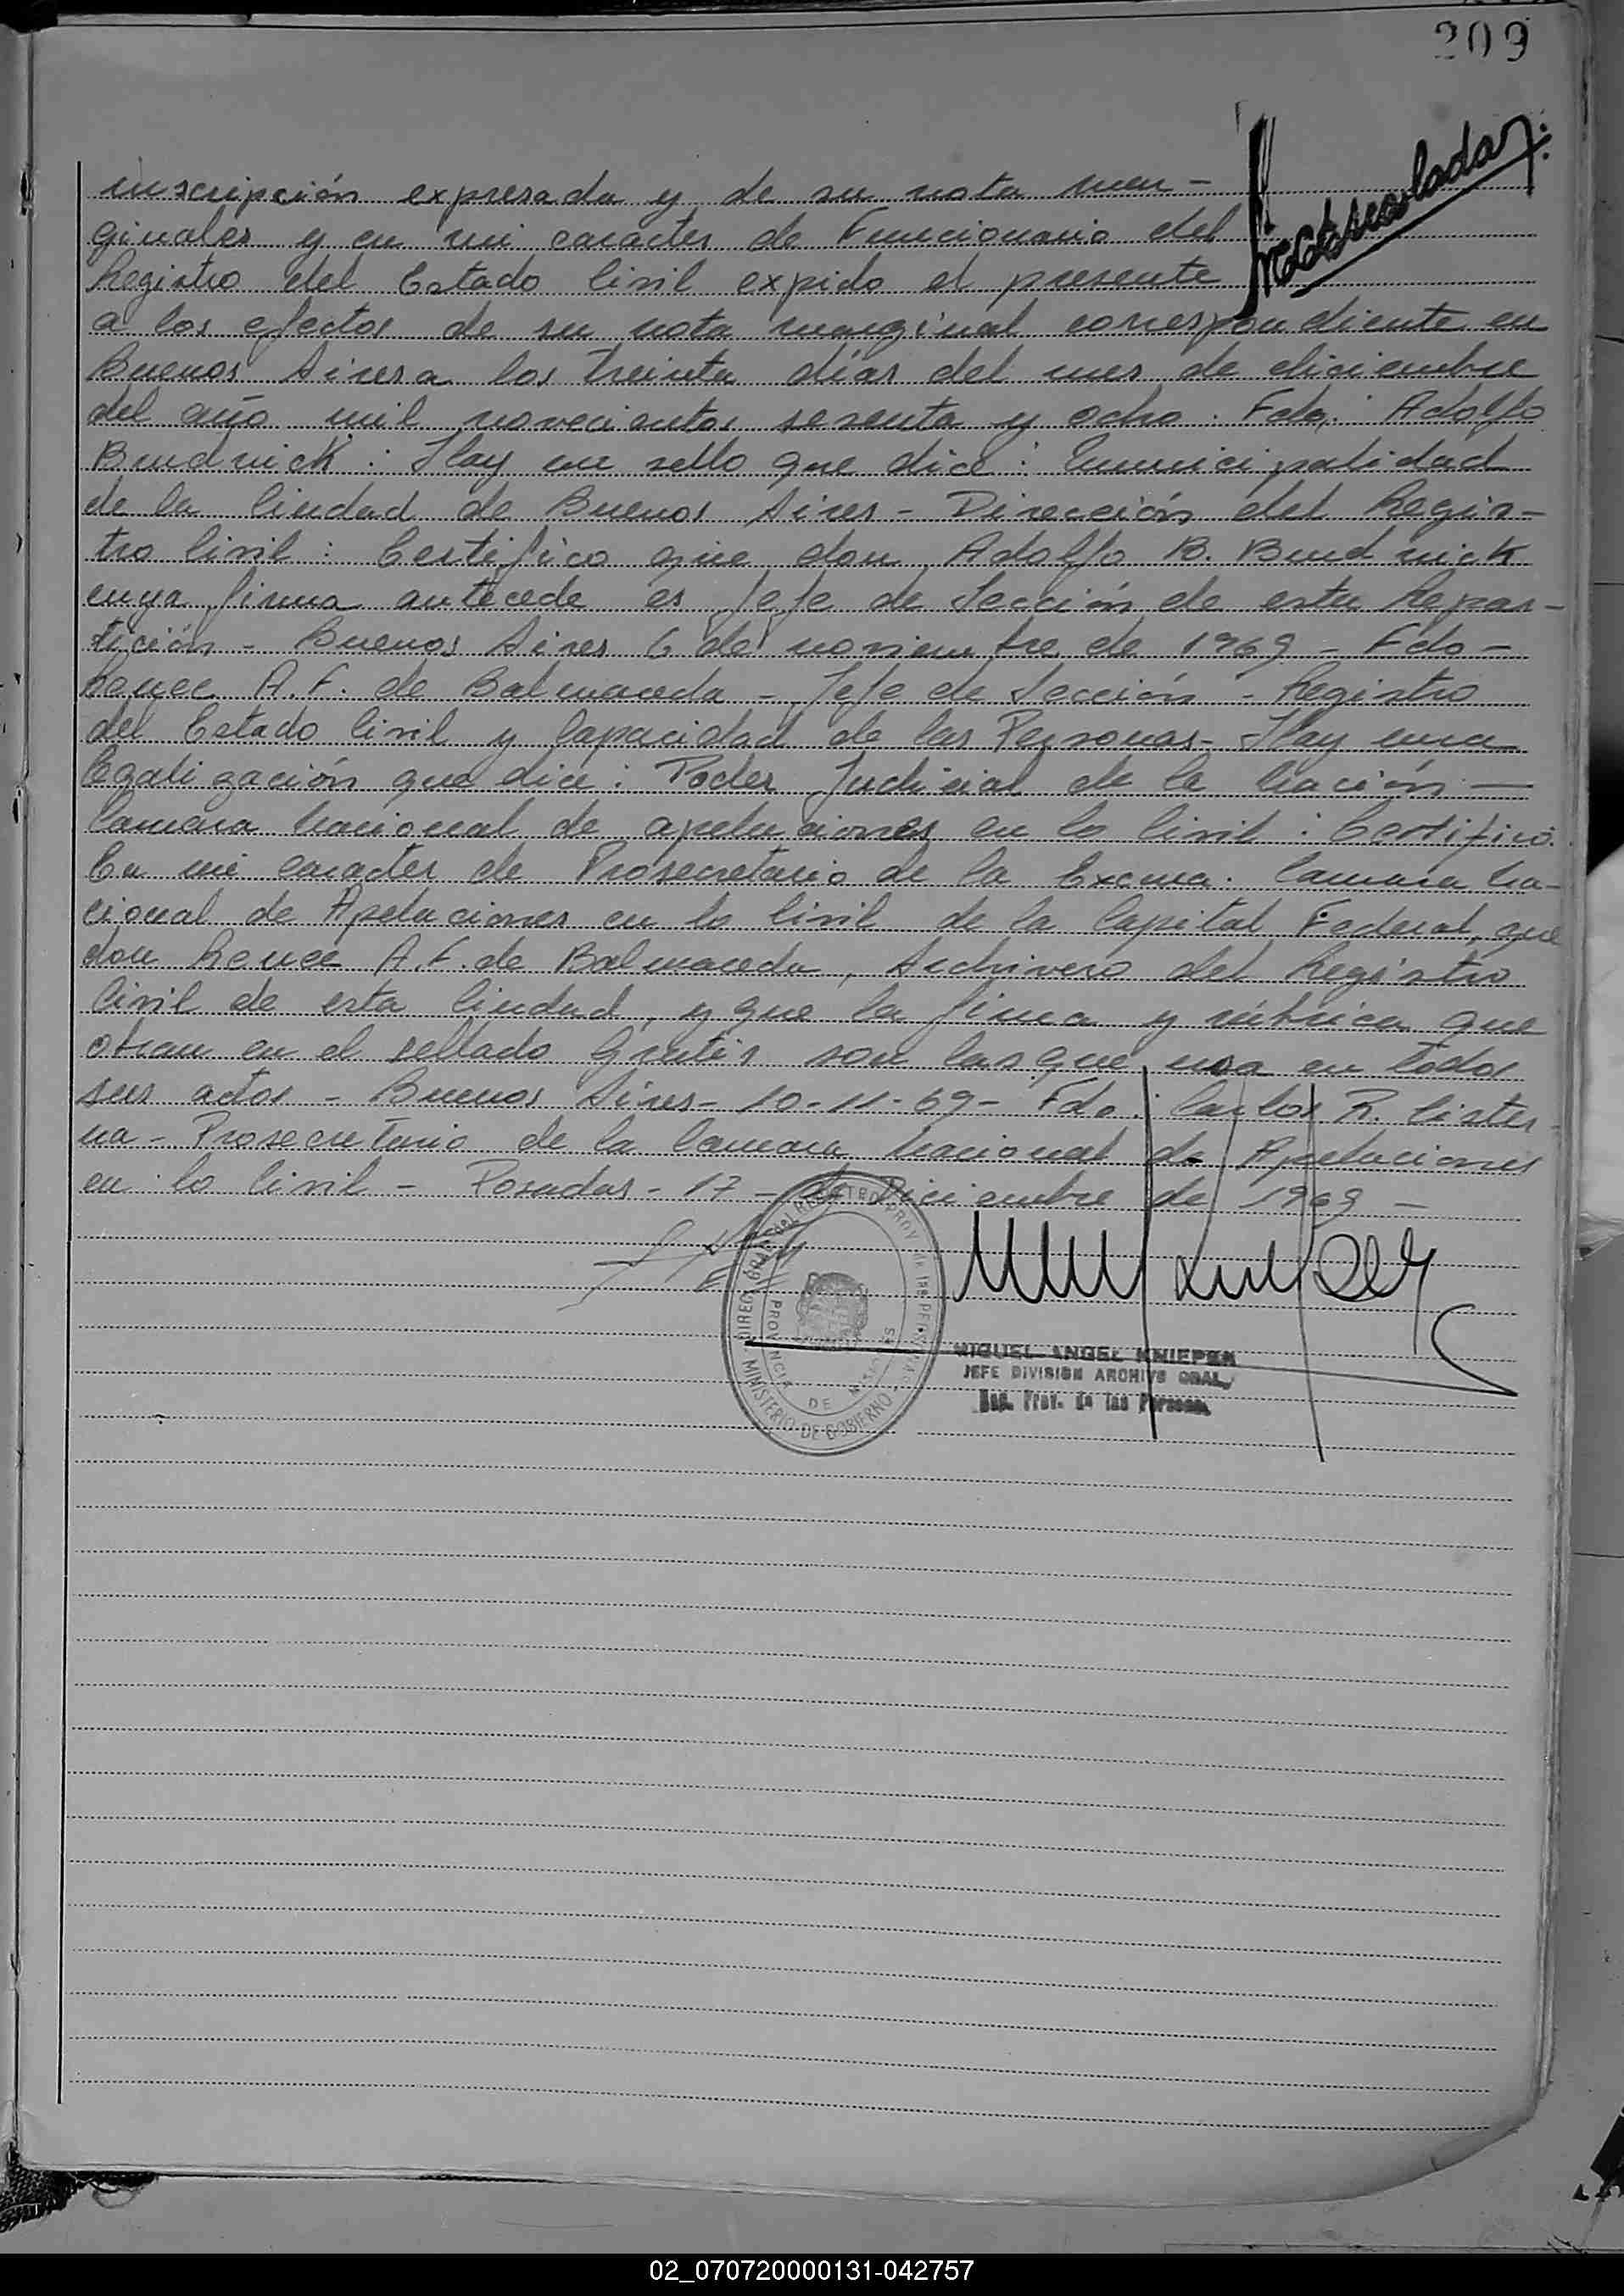 209
Matriculada
inscripción expresada y de su nota mar-
ginales y en mi caracter de Funcionario del
Registro del Estado Civil expido el presente
a los efectos de su nota marginal correspondiente en
Buenos Aires a los treinta días del mes de diciembre
del año mil novecientos sesenta y ocho. Fdo: Adolfo
Budnick: Hay un sello que dice: Municipalidad
de la Ciudad de Buenos Aires - Dirección del Regis-
tro Civil: Certifico que don Adolfo B. Budnick
cuya firma antecede es Jefe de Sección de esta Repar-
tición - Buenos Aires 6 de noviembre de 1969 - Fdo -
Renee A. F. de Balmaceda - Jefe de Sección - Registro
del Estado Civil y Capacidad de las Personas - Hay una
legalización que dice: Poder Judicial de la Nación —
Camara Nacional de apelaciones en lo Civil: Certifico:
En mi caracter de Prosecretario de la Excma. Camara Na-
cional de Apelaciones en lo Civil de la Capital Federal, que
don Renee A. F. de Balmaceda, Archivero del Registro
Civil de esta Ciudad, y que la firma y rúbrica que
obran en el sellado Gratis son las que usa en todos
sus actos - Buenos Aires - 10-11-69 - Fdo: Carlos R. Cister-
na - Prosecretario de la Camara Nacional de Apelaciones
en lo Civil - Posadas - 17 - de Diciembre de 1969 -
PROVINCIA DE MISIONES
MINISTERIO DE GOBIERNO
MIGUEL ANGEL KNIEPER
JEFE DIVISION ARCHIVO GRAL.
Reg. Prov. de las Personas
02_070720000131-042757